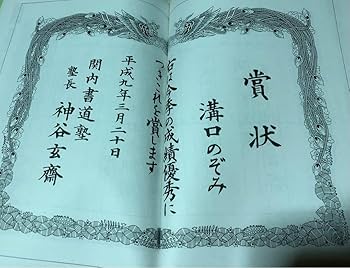 賞状
溝口のぞみ
右は今季の成績優秀に
つきこれを賞します
平成九年三月二十日
関内書道塾
塾長 神谷玄齋